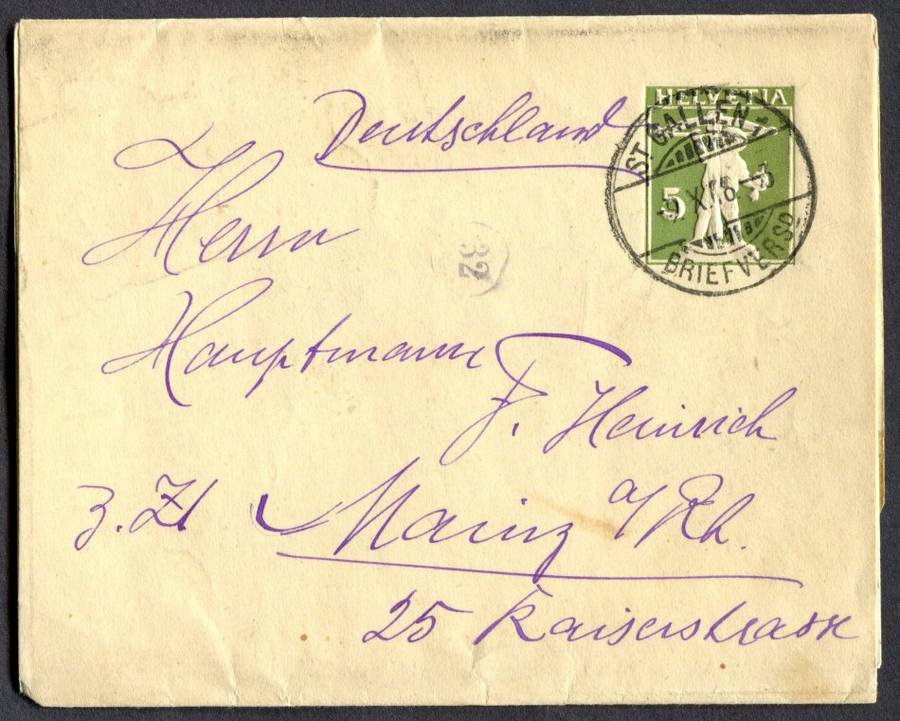 Deutschland
HELVETIA
5
ST. GALLEN 1
XI.16
BRIEFVERSD.
Herrn
32
Hauptmann
F. Heinrich
z. Zt Mainz a/Rh.
25 Kaiserstrasse